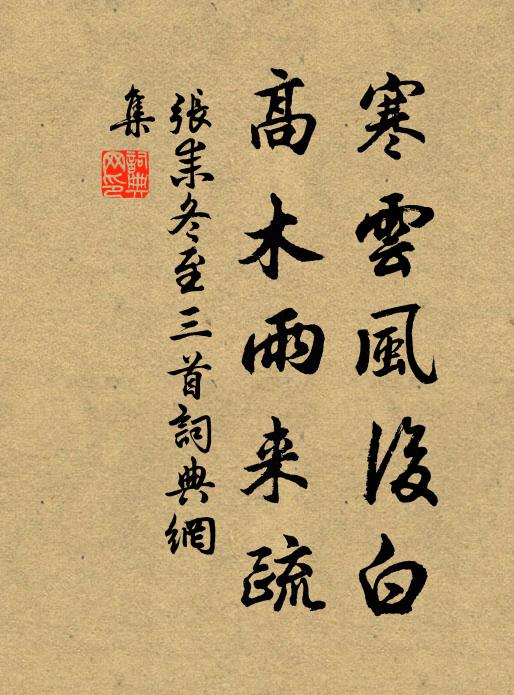 寒雲風後白
高木雨来疏
張耒冬至三首詞典網
集
詞典
网印